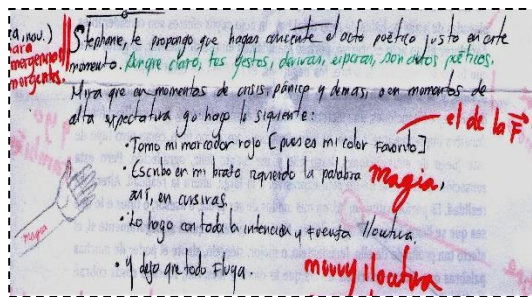 a, nov.)
para
mergencias
mergentes.
Stephanie, te propongo que hagas conciente el acto poético justo en este
momento. Aunque claro, tus gestos, derivas, esperas, son actos poéticos.
Mira que en momentos de crisis, pánico y demás, o en momentos de
alta expectativa yo hago lo siguiente:
el de la F
• Tomo mi marcador rojo [pues es mi color favorito]
• Escribo en mi brazo izquierdo la palabra magia,
así, en cursivas.
• Lo hago con toda la intención y fuerza
• Y dejo que todo fluya.
magia